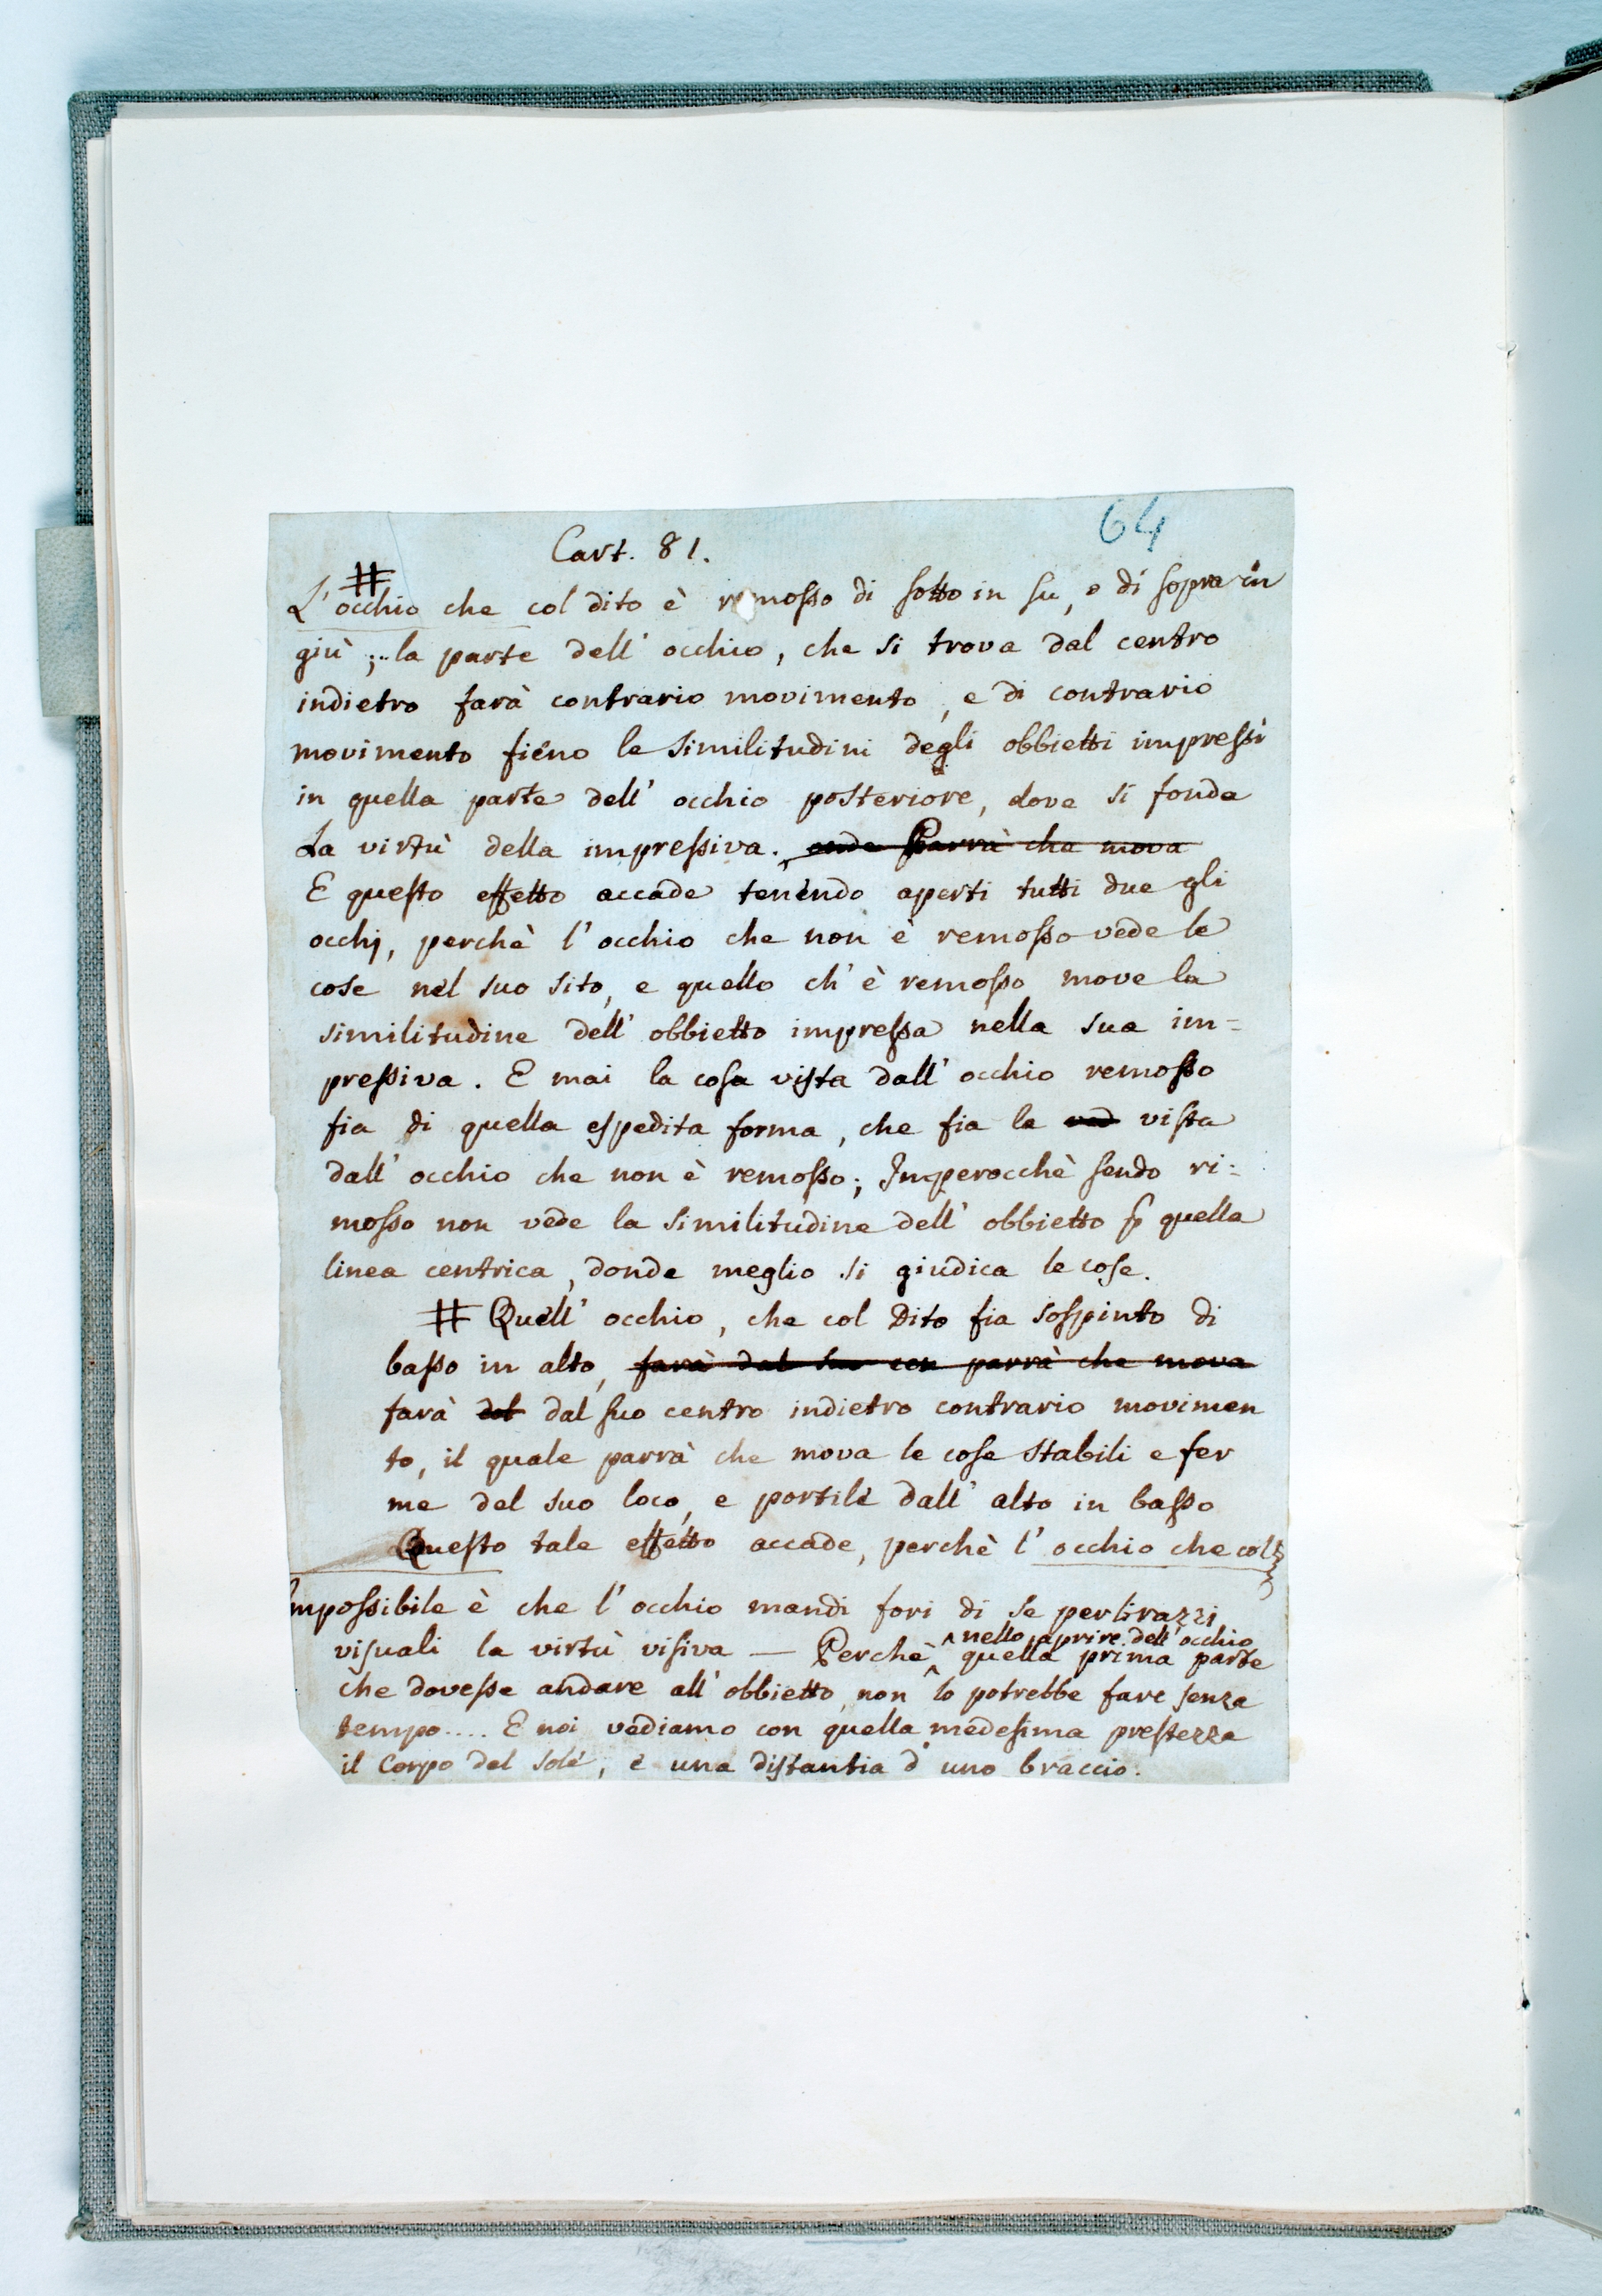 64
Cart. 81.
#
L'occhio che col dito è remosso di sotto in su, o di sopra in
giù ;.. la parte dell' occhio, che si trova dal centro
indietro farà contrario movimento, e di contrario
movimento fiéno le similitudini degli obbietti impressi
in quella parte dell' occhio posteriore, dove si fonda
La virtù della impressiva. onde Parrà che mova
E questo effetto accade tenèndo aperti tutti due gli
occhj, perchè l' occhio che non è remosso vede le
cose nel suo sito, e quello ch' è remosso move la
similitudine dell' obbietto impressa nella sua im=
pressiva. E mai la cosa vista dall' occhio remosso
fia di quella espedita forma, che fia la ved vista
dall' occhio che non è remosso; Imperocchè sendo ri=
mosso non vede la similitudine dell' obbietto p quella
linea centrica, donde meglio si giudica le cose.
# Quell' occhio, che col Dito fia sospinto di
basso in alto, farà dal suo con parrà che mova
farà dal dal suo centro indietro contrario movimen
to, il quale parrà che mova le cose stabili e fer
me del suo loco, e portile dall' alto in basso
Questo tale effetto accade, perchè l' occhio che col
Impossibile è che l' occhio mandi fori di se per li razzi
visuali la virtù visiva — Perchè ^ nello aprire dell' occhio
^ quella prima parte
che dovesse andare all' obbietto, non lo potrebbe fare senza
tempo.... E noi vediamo con quella medesima prestezza
il Corpo del sole, e una distantia d' uno braccio.